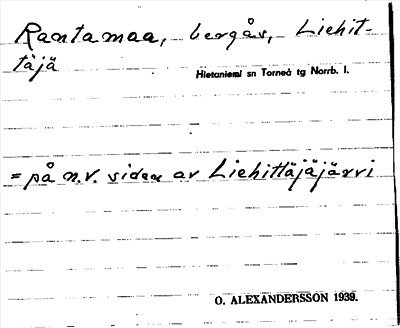 Rantamaa, bergås, Liehit-
täjä
Hietaniemi sn Torneå tg Norrb. l.
= på n.v. sidan av Liehittäjäjärvi
O. ALEXANDERSSON 1939.